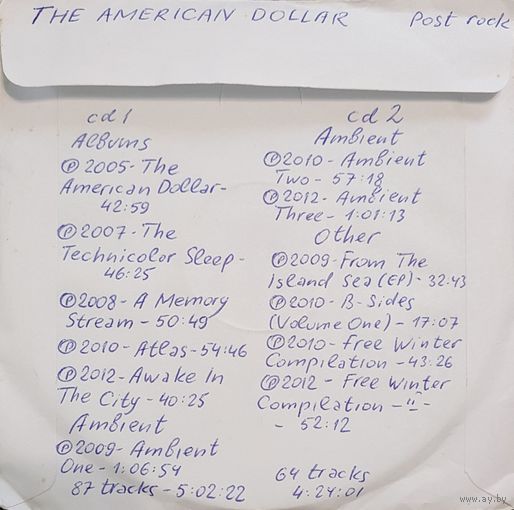 THE AMERICAN DOLLAR Post rock
cd 1
Albums
℗ 2005 - The
American Dollar -
42:59
℗ 2007 - The
Technicolor Sleep -
46:25
℗ 2008 - A Memory
Stream - 50:49
℗ 2010 - Atlas - 54:46
℗ 2012 - Awake In
The City - 40:25
Ambient
℗ 2009 - Ambient
One - 1:06:54
87 tracks - 5:02:22
cd 2
Ambient
℗ 2010 - Ambient
Two - 57:18
℗ 2012 - Ambient
Three - 1:01:13
Other
℗ 2009 - From The
Island Sea (EP) - 32:43
℗ 2010 - B-Sides
(Volume One) - 17:07
℗ 2010 - Free Winter
Compilation - 43:26
℗ 2012 - Free Winter
Compilation - "-" -
- 52:12
64 tracks
4:24:01
www.ay.by